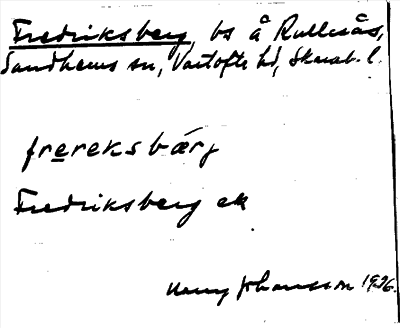 Fredriksberg, bs å Rullesås,
Sandhems sn, Vartofta hd, Skarab. l.
frereksbærj
Fredriksberg ek
Johansson 1926.